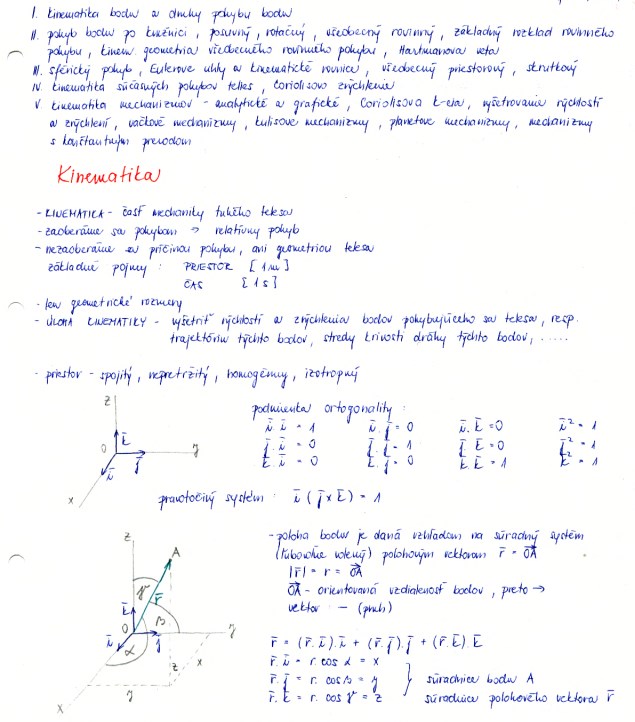 I. kinematika bodu a druhy pohybu bodu
II. pohyb bodu po kružnici, posuvný, rotačný, všeobecný rovinný, základný rozklad rovinného
pohybu, kinem. geometria všeobecného rovinného pohybu, Hartmanova veta
III. sférický pohyb, Eulerove uhly a kinematické rovnice, všeobecný priestorový, skrutkový
IV kinematika súčasných pohybov telies, Coriolisovo zrýchlenie
V. kinematika mechanizmov - analytické a grafické, Coriolisova k-cia, vyšetrovanie rýchlostí
a zrýchlení, vačkové mechanizmy, kulisové mechanizmy, planetové mechanizmy, mechanizmy
s konštantným prevodom
Kinematika
- KINEMATICA - časť mechaniky tuhého telesa
- zaoberáme sa pohybom → relatívny pohyb
- nezaoberáme sa príčinou pohybu, ani geometriou telesa
základné pojmy : PRIESTOR [1m]
ČAS [1s]
- len geometrické rozmery
- ÚLOHA KINEMATIKY - vyšetriť rýchlosti a zrýchlenia bodov pohybujúceho sa telesa, resp.
trajektóriu týchto bodov, stredy krivosti dráhy týchto bodov, .....
- priestor - spojitý, nepretržitý, homogénny, izotropný
z
k̄
0
j̄
y
ī
x
podmienka ortogonality :
ī.ī = 1 ī.j̄ = 0 ī.k̄ = 0 ī² = 1
j̄.ī = 0 j̄.j̄ = 1 j̄.k̄ = 0 j̄² = 1
k̄.ī = 0 k̄.j̄ = 0 k̄.k̄ = 1 k̄² = 1
pravotočivý systém : ī (j̄ x k̄) = 1
z
A
γ
r̄
k̄
β
0
j̄
y
ī
α
z
x
y
x
- poloha bodu je daná vzhľadom na súradný systém
(ľubovoľne volený) polohovým vektorom r̄ = O⃗A
|r̄| = r = O⃗A
O⃗A - orientovaná vzdialenosť bodov, preto →
vektor : - (pruh)
r̄ = (r̄.ī).ī + (r̄.j̄).j̄ + (r̄.k̄).k̄
r̄.ī = r.cos α = x
r̄.j̄ = r.cos β = y } súradnice bodu A
r̄.k̄ = r.cos γ = z súradnice polohového vektora r̄